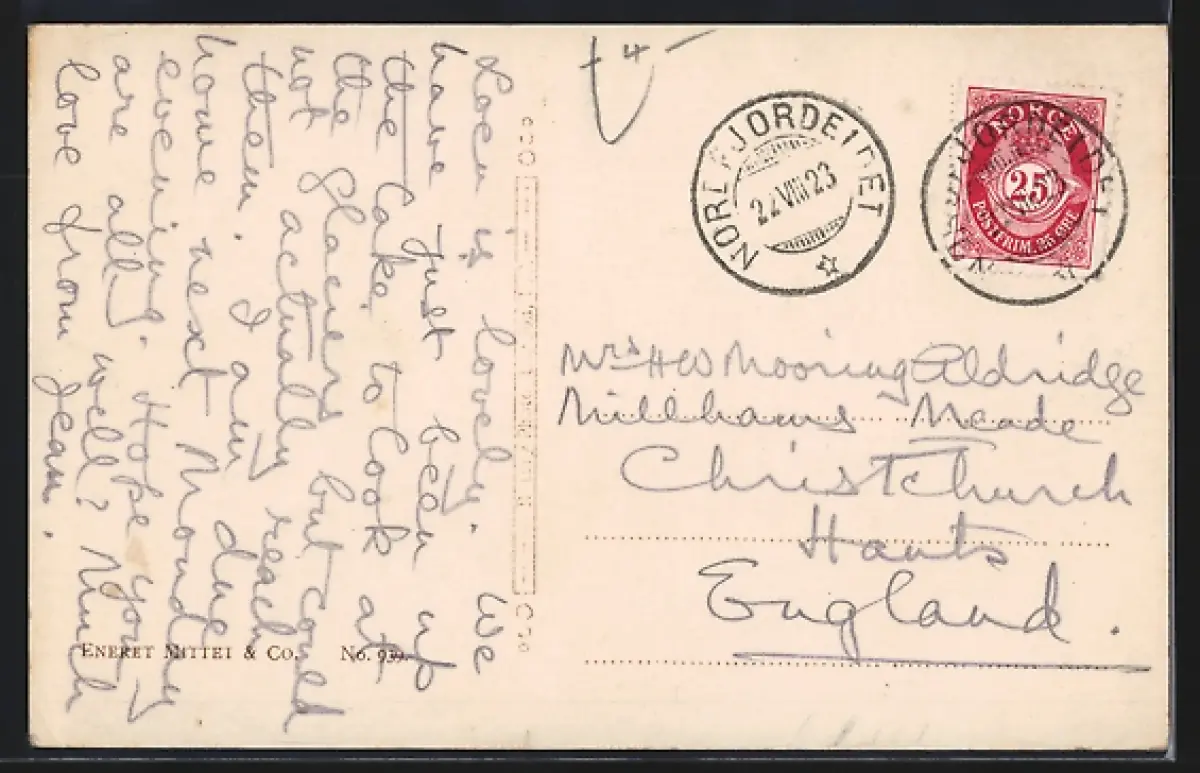 Loen is lovely. We
have just been up
the Lake to look at
the glaciers but could
not actually reach
them. I am due
home next Monday
evening. Hope you
are all well? Much
love from Jean.
ENERET MITTET & Co. No. 939.
4
NORDFJORDEIDET
22 VIII 23
NORGE
25
POSTFRIM. 25 ØRE
Mrs H W Mooring Aldridge
Millhams Meade
Christchurch
Hants
England.